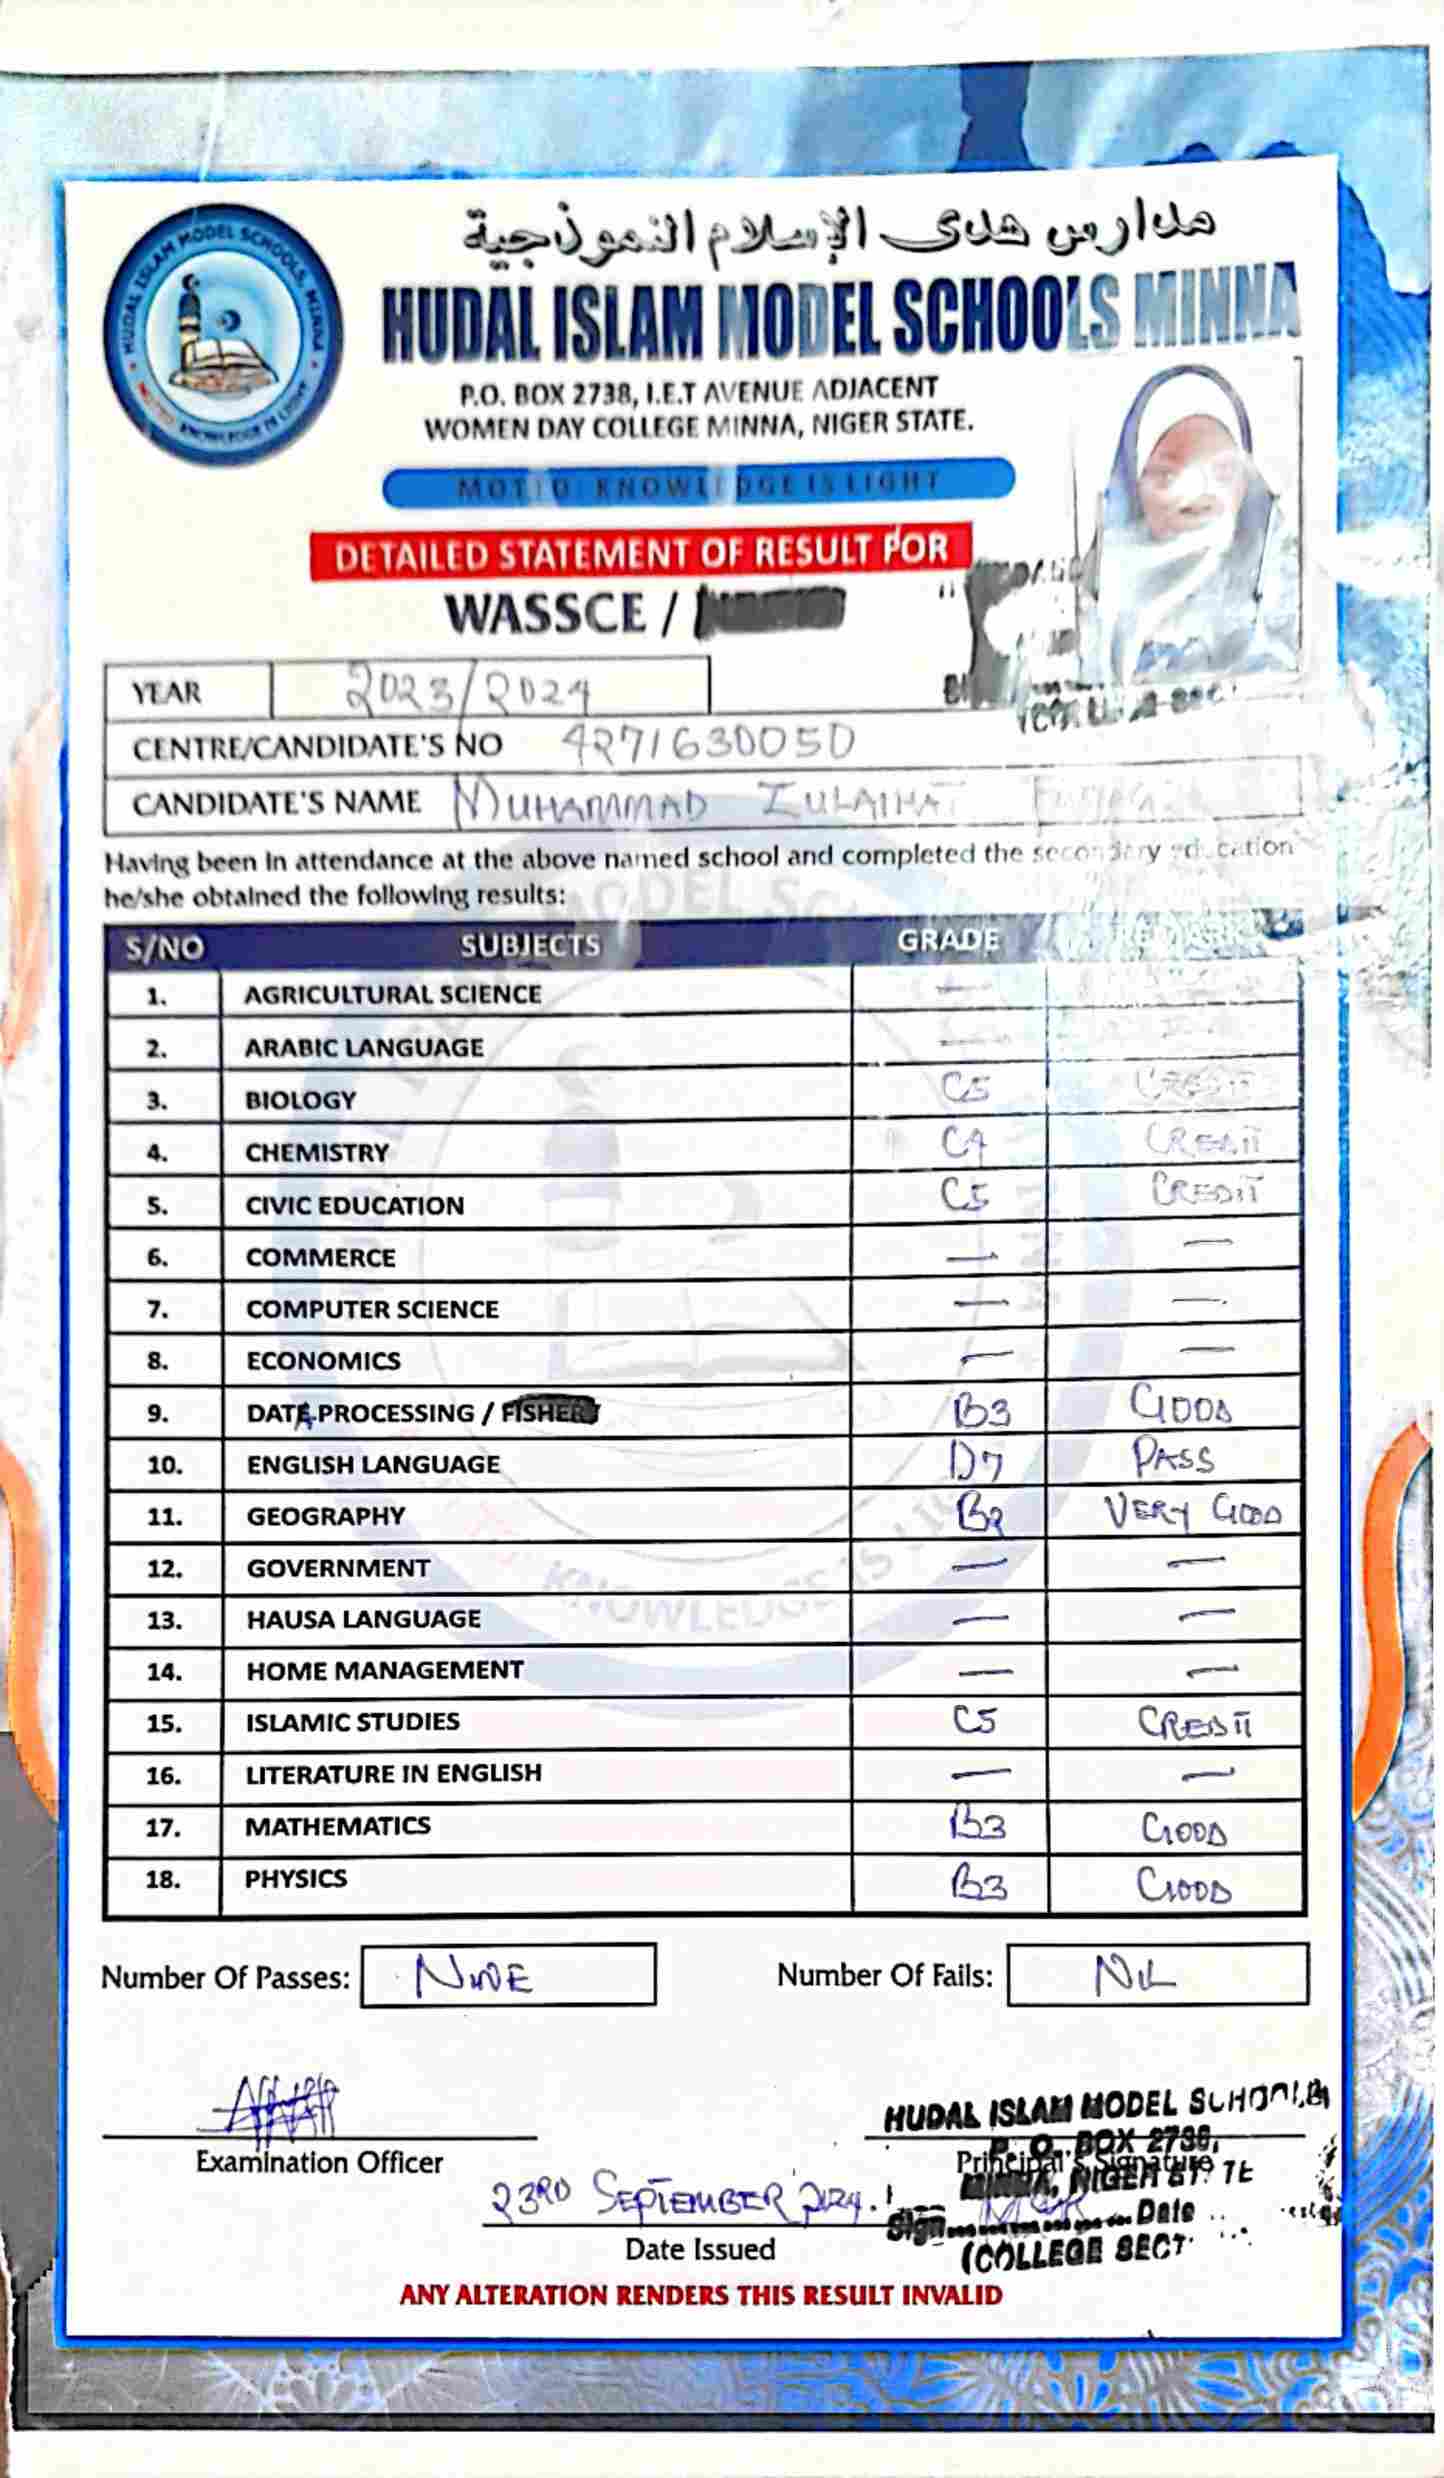 HUDAL ISLAM MODEL SCHOOLS, MINNA
KNOWLEDGE IS LIGHT
مدارس هدى الإسلام النموذجية
HUDAL ISLAM MODEL SCHOOLS MINNA
P.O. BOX 2738, I.E.T AVENUE ADJACENT
WOMEN DAY COLLEGE MINNA, NIGER STATE.
MOTTO: KNOWLEDGE IS LIGHT
DETAILED STATEMENT OF RESULT FOR
WASSCE /
YEAR 2023/2024
CENTRE/CANDIDATE'S NO 4271630050
CANDIDATE'S NAME MUHAMMAD ZULAIHAT
Having been in attendance at the above named school and completed the secondary education
he/she obtained the following results:
S/NO SUBJECTS GRADE REMARK
1. AGRICULTURAL SCIENCE —
2. ARABIC LANGUAGE —
3. BIOLOGY C5 CREDIT
4. CHEMISTRY C4 CREDIT
5. CIVIC EDUCATION C5 CREDIT
6. COMMERCE — —
7. COMPUTER SCIENCE — —
8. ECONOMICS — —
9. DATA PROCESSING / FISHERY B3 GOOD
10. ENGLISH LANGUAGE D7 PASS
11. GEOGRAPHY B2 VERY GOOD
12. GOVERNMENT — —
13. HAUSA LANGUAGE — —
14. HOME MANAGEMENT — —
15. ISLAMIC STUDIES C5 CREDIT
16. LITERATURE IN ENGLISH — —
17. MATHEMATICS B3 GOOD
18. PHYSICS B3 GOOD
Number Of Passes: NINE Number Of Fails: NIL
HUDAL ISLAM MODEL SCHOOLS
P. O. BOX 2738,
Examination Officer Principal's Signature
MINNA, NIGER STATE
23RD SEPTEMBER 2024.
Sign Date
Date Issued
(COLLEGE SECT
ANY ALTERATION RENDERS THIS RESULT INVALID